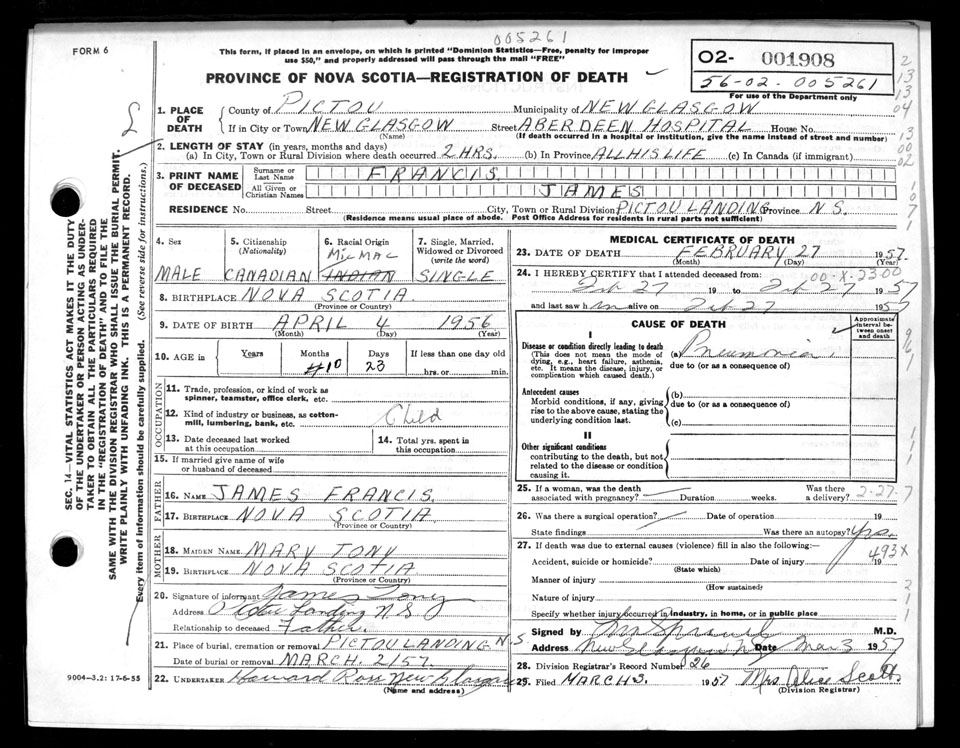 FORM 6
005261
This form, if placed in an envelope, on which is printed "Dominion Statistics—Free, penalty for improper
use $50," and properly addressed will pass through the mail "FREE"
PROVINCE OF NOVA SCOTIA—REGISTRATION OF DEATH
O2- 001908
56-02-005261
For use of the Department only
1. PLACE OF DEATH
County of PICTOU Municipality of NEW GLASGOW
If in City or Town NEW GLASGOW Street ABERDEEN HOSPITAL House No.
(Name) (If death occurred in a hospital or institution, give the name instead of street and number)
2. LENGTH OF STAY (in years, months and days)
(a) In City, Town or Rural Division where death occurred 2 HRS. (b) In Province ALL HIS LIFE (c) In Canada (if immigrant)
3. PRINT NAME OF DECEASED
Surname or Last Name FRANCIS
All Given or Christian Names JAMES
RESIDENCE No. Street City, Town or Rural Division PICTOU LANDING Province N S.
(Residence means usual place of abode. Post Office Address for residents in rural parts not sufficient)
4. Sex MALE
5. Citizenship (Nationality) CANADIAN
6. Racial Origin MICMAC INDIAN
7. Single, Married, Widowed or Divorced (write the word) SINGLE
8. BIRTHPLACE NOVA SCOTIA
(Province or Country)
9. DATE OF BIRTH APRIL 4 1956
(Month) (Day) (Year)
10. AGE in Years Months 10 Days 23 If less than one day old
hrs. or min.
OCCUPATION
11. Trade, profession, or kind of work as
spinner, teamster, office clerk, etc.
12. Kind of industry or business, as cotton-
mill, lumbering, bank, etc. Child
13. Date deceased last worked
at this occupation
14. Total yrs. spent in
this occupation
15. If married give name of wife
or husband of deceased
FATHER
16. NAME JAMES FRANCIS.
17. BIRTHPLACE NOVA SCOTIA
(Province or Country)
MOTHER
18. MAIDEN NAME MARY TONY
19. BIRTHPLACE NOVA SCOTIA
(Province or Country)
20. Signature of informant James Tony
Address Pictou Landing N S
Relationship to deceased Father.
21. Place of burial, cremation or removal PICTOU LANDING N.S.
Date of burial or removal MARCH. 2/57.
22. UNDERTAKER Howard Ross New Glasgow
(Name and address)
9004-3.2: 17-6-55
MEDICAL CERTIFICATE OF DEATH
23. DATE OF DEATH FEBRUARY 27 1957.
(Month) (Day) (Year)
24. I HEREBY CERTIFY that I attended deceased from:
00-X-23-00
Feb 27 19 to Feb 27 1957
and last saw him alive on Feb 27 1957
CAUSE OF DEATH
Approximate interval between onset and death
I
Disease or condition directly leading to death
(This does not mean the mode of dying, e.g., heart failure, asthenia, etc. It means the disease, injury, or complication which caused death.)
(a) Pneumonia.
due to (or as a consequence of)
Antecedent causes
Morbid conditions, if any, giving rise to the above cause, stating the underlying condition last.
(b)
due to (or as a consequence of)
(c)
II
Other significant conditions
contributing to the death, but not related to the disease or condition causing it.
25. If a woman, was the death Was there
associated with pregnancy? Duration weeks. a delivery?
2-27-7
26. Was there a surgical operation? Date of operation 19
State findings Was there an autopsy? Yes.
27. If death was due to external causes (violence) fill in also the following:—
493X
Accident, suicide or homicide? Date of injury 19
(State which)
Manner of injury
(How sustained)
Nature of injury
Specify whether injury occurred in industry, in home, or in public place
Signed by M.D.
Address New Glasgow N.S. Date Mar 3 1957
28. Division Registrar's Record Number 26
29. Filed MARCH 3. 1957 Mrs Alice Scott
(Division Registrar)
SEC. 14—VITAL STATISTICS ACT MAKES IT THE DUTY
OF THE UNDERTAKER OR PERSON ACTING AS UNDER-
TAKER TO OBTAIN ALL THE PARTICULARS REQUIRED
IN THE "REGISTRATION OF DEATH" AND TO FILE THE
SAME WITH THE DIVISION REGISTRAR WHO SHALL ISSUE THE BURIAL PERMIT.
WRITE PLAINLY WITH UNFADING INK. THIS IS A PERMANENT RECORD.
Every item of information should be carefully supplied. (See reverse side for instructions.)